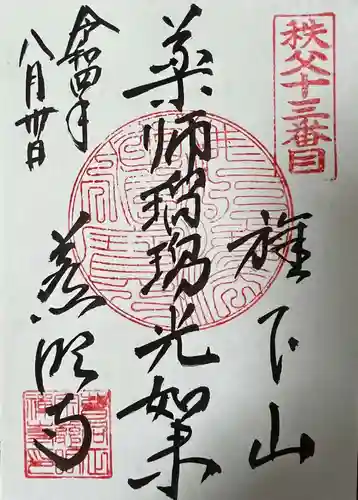 秩父十三番目
旗下山
薬師瑠璃光如来
慈眼寺
令和四年
八月卅日